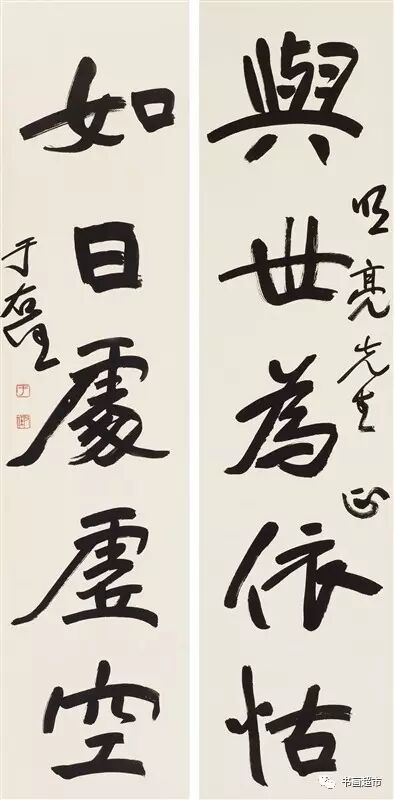 與世為依怙
明亮先生正
如日處虛空
于右任
书画超市